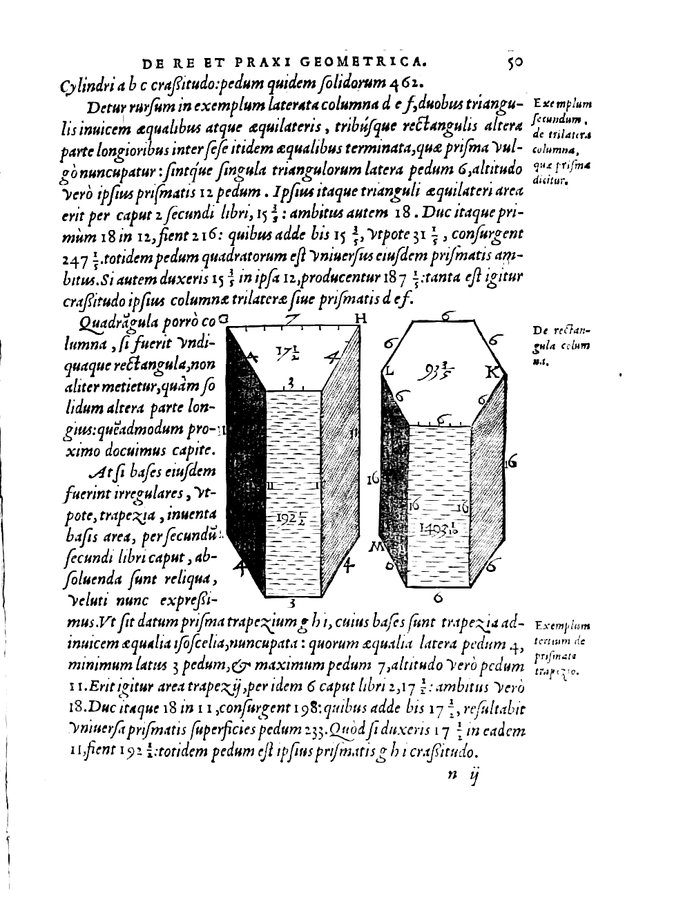 DE RE ET PRAXI GEOMETRICA. 50
Cylindri a b c craßitudo: pedum quidem ſolidorum 462.
Detur rurſum in exemplum laterata columna d e f, duobus triangu-
lis inuicem æqualibus atque æquilateris, tribúſque rectangulis altera
parte longioribus inter ſeſe itidem æqualibus terminata, quæ priſma vul-
gò nuncupatur: ſintq́ue ſingula triangulorum latera pedum 6, altitudo
verò ipſius priſmatis 12 pedum. Ipſius itaque trianguli æquilateri area
erit per caput 2 ſecundi libri, 15 3/5: ambitus autem 18. Duc itaque pri-
mùm 18 in 12, fient 216: quibus adde bis 15 3/5, vtpote 31 1/5, conſurgent
247 1/5. totidem pedum quadratorum eſt vniuerſus eiuſdem priſmatis am-
bitus. Si autem duxeris 15 3/5 in ipſa 12, producentur 187 1/5: tanta eſt igitur
craßitudo ipſius columnæ trilateræ ſiue priſmatis d e f.
Exemplum
ſecundum,
de trilatera
columna,
quæ priſma
dicitur.
Quadrāgula porrò co
lumna, ſi fuerit vndi-
quaque rectangula, non
aliter metietur, quàm ſo
lidum altera parte lon-
gius: quēadmodum pro-
ximo docuimus capite.
At ſi baſes eiuſdem
fuerint irregulares, vt-
pote, trapezia, inuenta
baſis area, per ſecundū
ſecundi libri caput, ab-
ſoluenda ſunt reliqua,
veluti nunc expreßi-
G 7 H
A 17 1/2 4
3
11 11 11
192 1/2
4 4
3
6
6 6
L 93 3/5 K
6 6
6
16 16 16 16
1493 1/6
M
6 6
6
De rectan-
gula colum
na.
mus. Vt ſit datum priſma trapezium g h i, cuius baſes ſunt trapezia ad-
inuicem æqualia iſoſcelia, nuncupata: quorum æqualia latera pedum 4,
minimum latus 3 pedum, & maximum pedum 7, altitudo verò pedum
11. Erit igitur area trapezij, per idem 6 caput libri 2, 17 1/2: ambitus verò
18. Duc itaque 18 in 11, conſurgent 198: quibus adde bis 17 1/2, reſultabit
vniuerſa priſmatis ſuperficies pedum 233. Quòd ſi duxeris 17 1/2 in eadem
11, fient 192 1/2: totidem pedum eſt ipſius priſmatis g h i craßitudo.
Exemplum
tertium de
priſmate
trapezio.
n ij